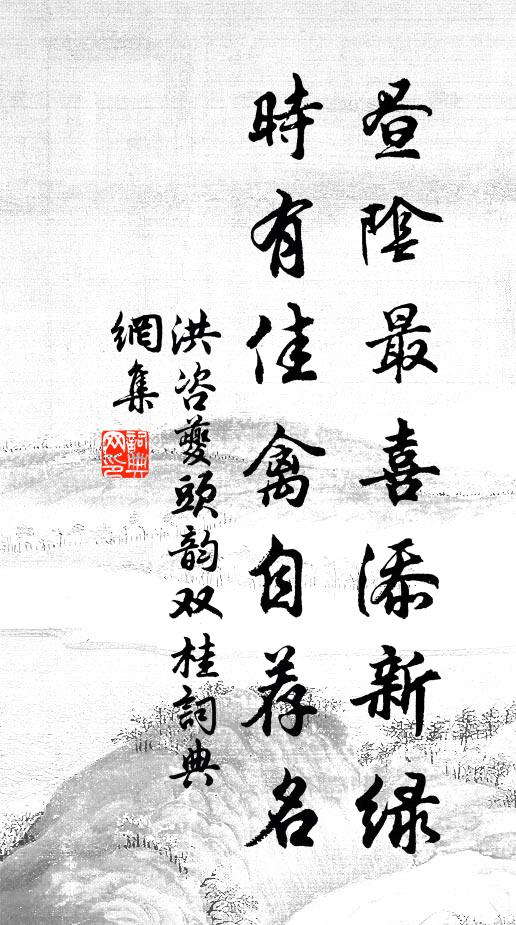 昼陰最喜添新绿
時有佳禽自荐名
洪咨夔頭韵双桂詞典
網集
詞典
网印